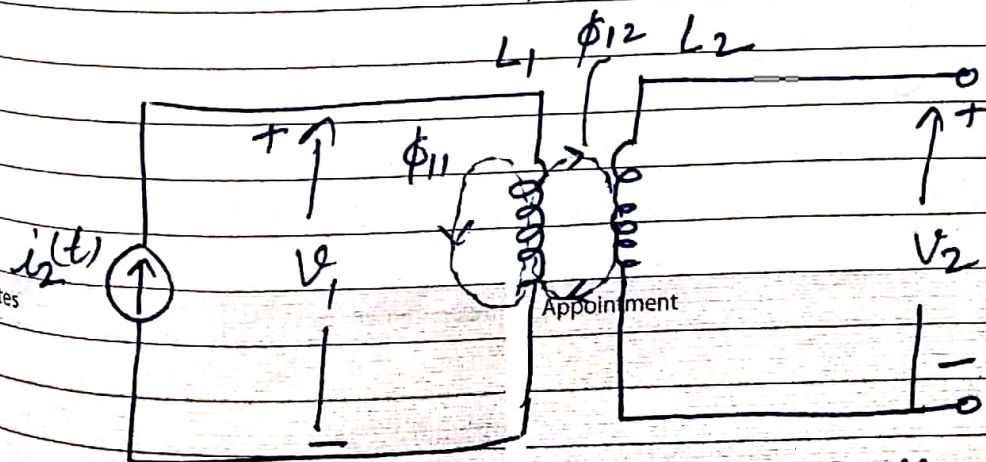 L₁ ϕ₁₂ L₂
+ ϕ₁₁ +
i₂(t) V₁ V₂
tes
Appointment
−
−